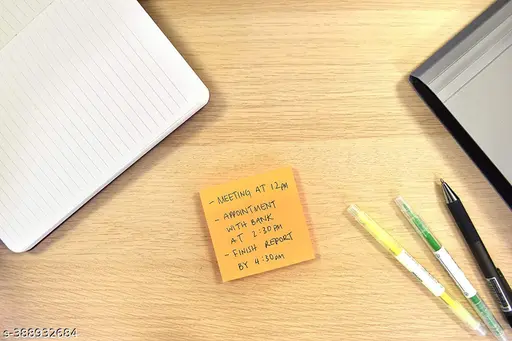 - MEETING AT 12PM
- APPOINTMENT
WITH BANK
AT 2:30PM
- FINISH REPORT
BY 4:30PM
s-388932684